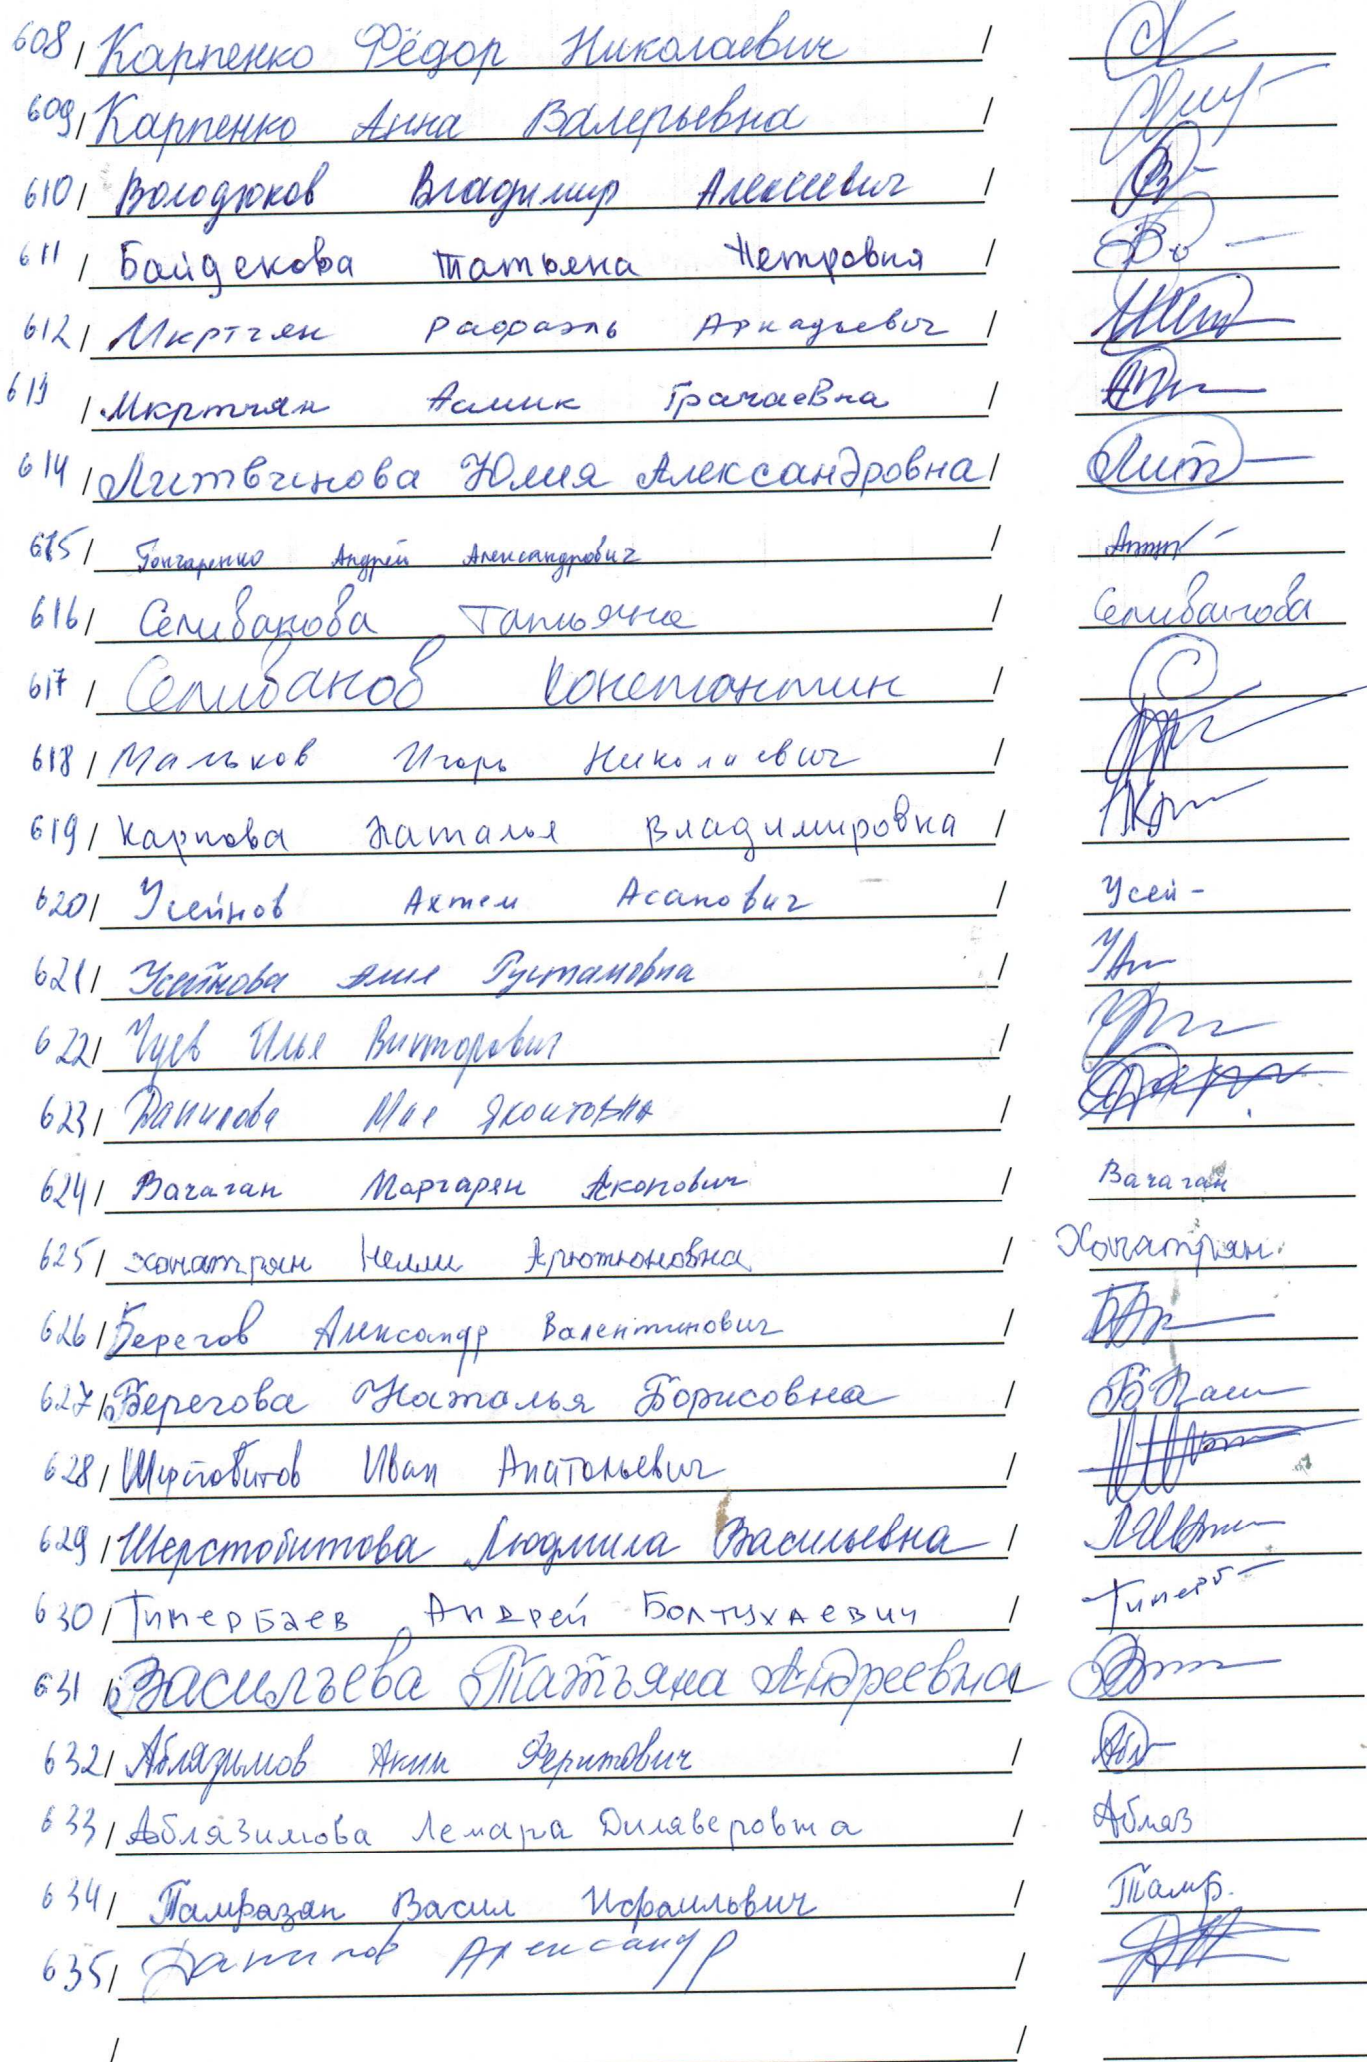 608 / Карпенко Фёдор Николаевич /
609 / Карпенко Анна Валерьевна /
610 / Володюков Владимир Алексеевич /
611 / Байдекова Татьяна Петровна /
612 / Мкртчян Рафаэль Аркадьевич /
613 / Мкртчян Асмик Грачаевна /
614 / Литвинова Юлия Александровна / Лит
615 / Гончаренко Андрей Александрович /
616 / Селиванова Татьяна / Селиванова
617 / Селиванов Константин /
618 / Мальков Игорь Николаевич /
619 / Карпова Наталья Владимировна /
620 / Усеинов Ахтем Асанович / Усеи-
621 / Усеинова Алие Рустамовна /
622 / Чуев Илья Викторович /
623 / Данилова Мае /
624 / Вачаган Маргарян Акопович / Вачаган
625 / Хочатрян Нелли Арютюновна / Хочатрян
626 / Берегов Александр Валентинович /
627 / Берегова Наталья Борисовна /
628 / Иван Анатольевич /
629 / Шерстобитова Людмила Васильевна /
630 / Тимербаев Андрей Болтухаевич /
631 / Васильева Татьяна Андреевна /
632 / Аблязимов Аким Феритович / Абл
633 / Аблязимова Лемара Диляверовна / Абляз
634 / Тамразян Васил Исраилович / Тамр.
635 / Данилов Александр /